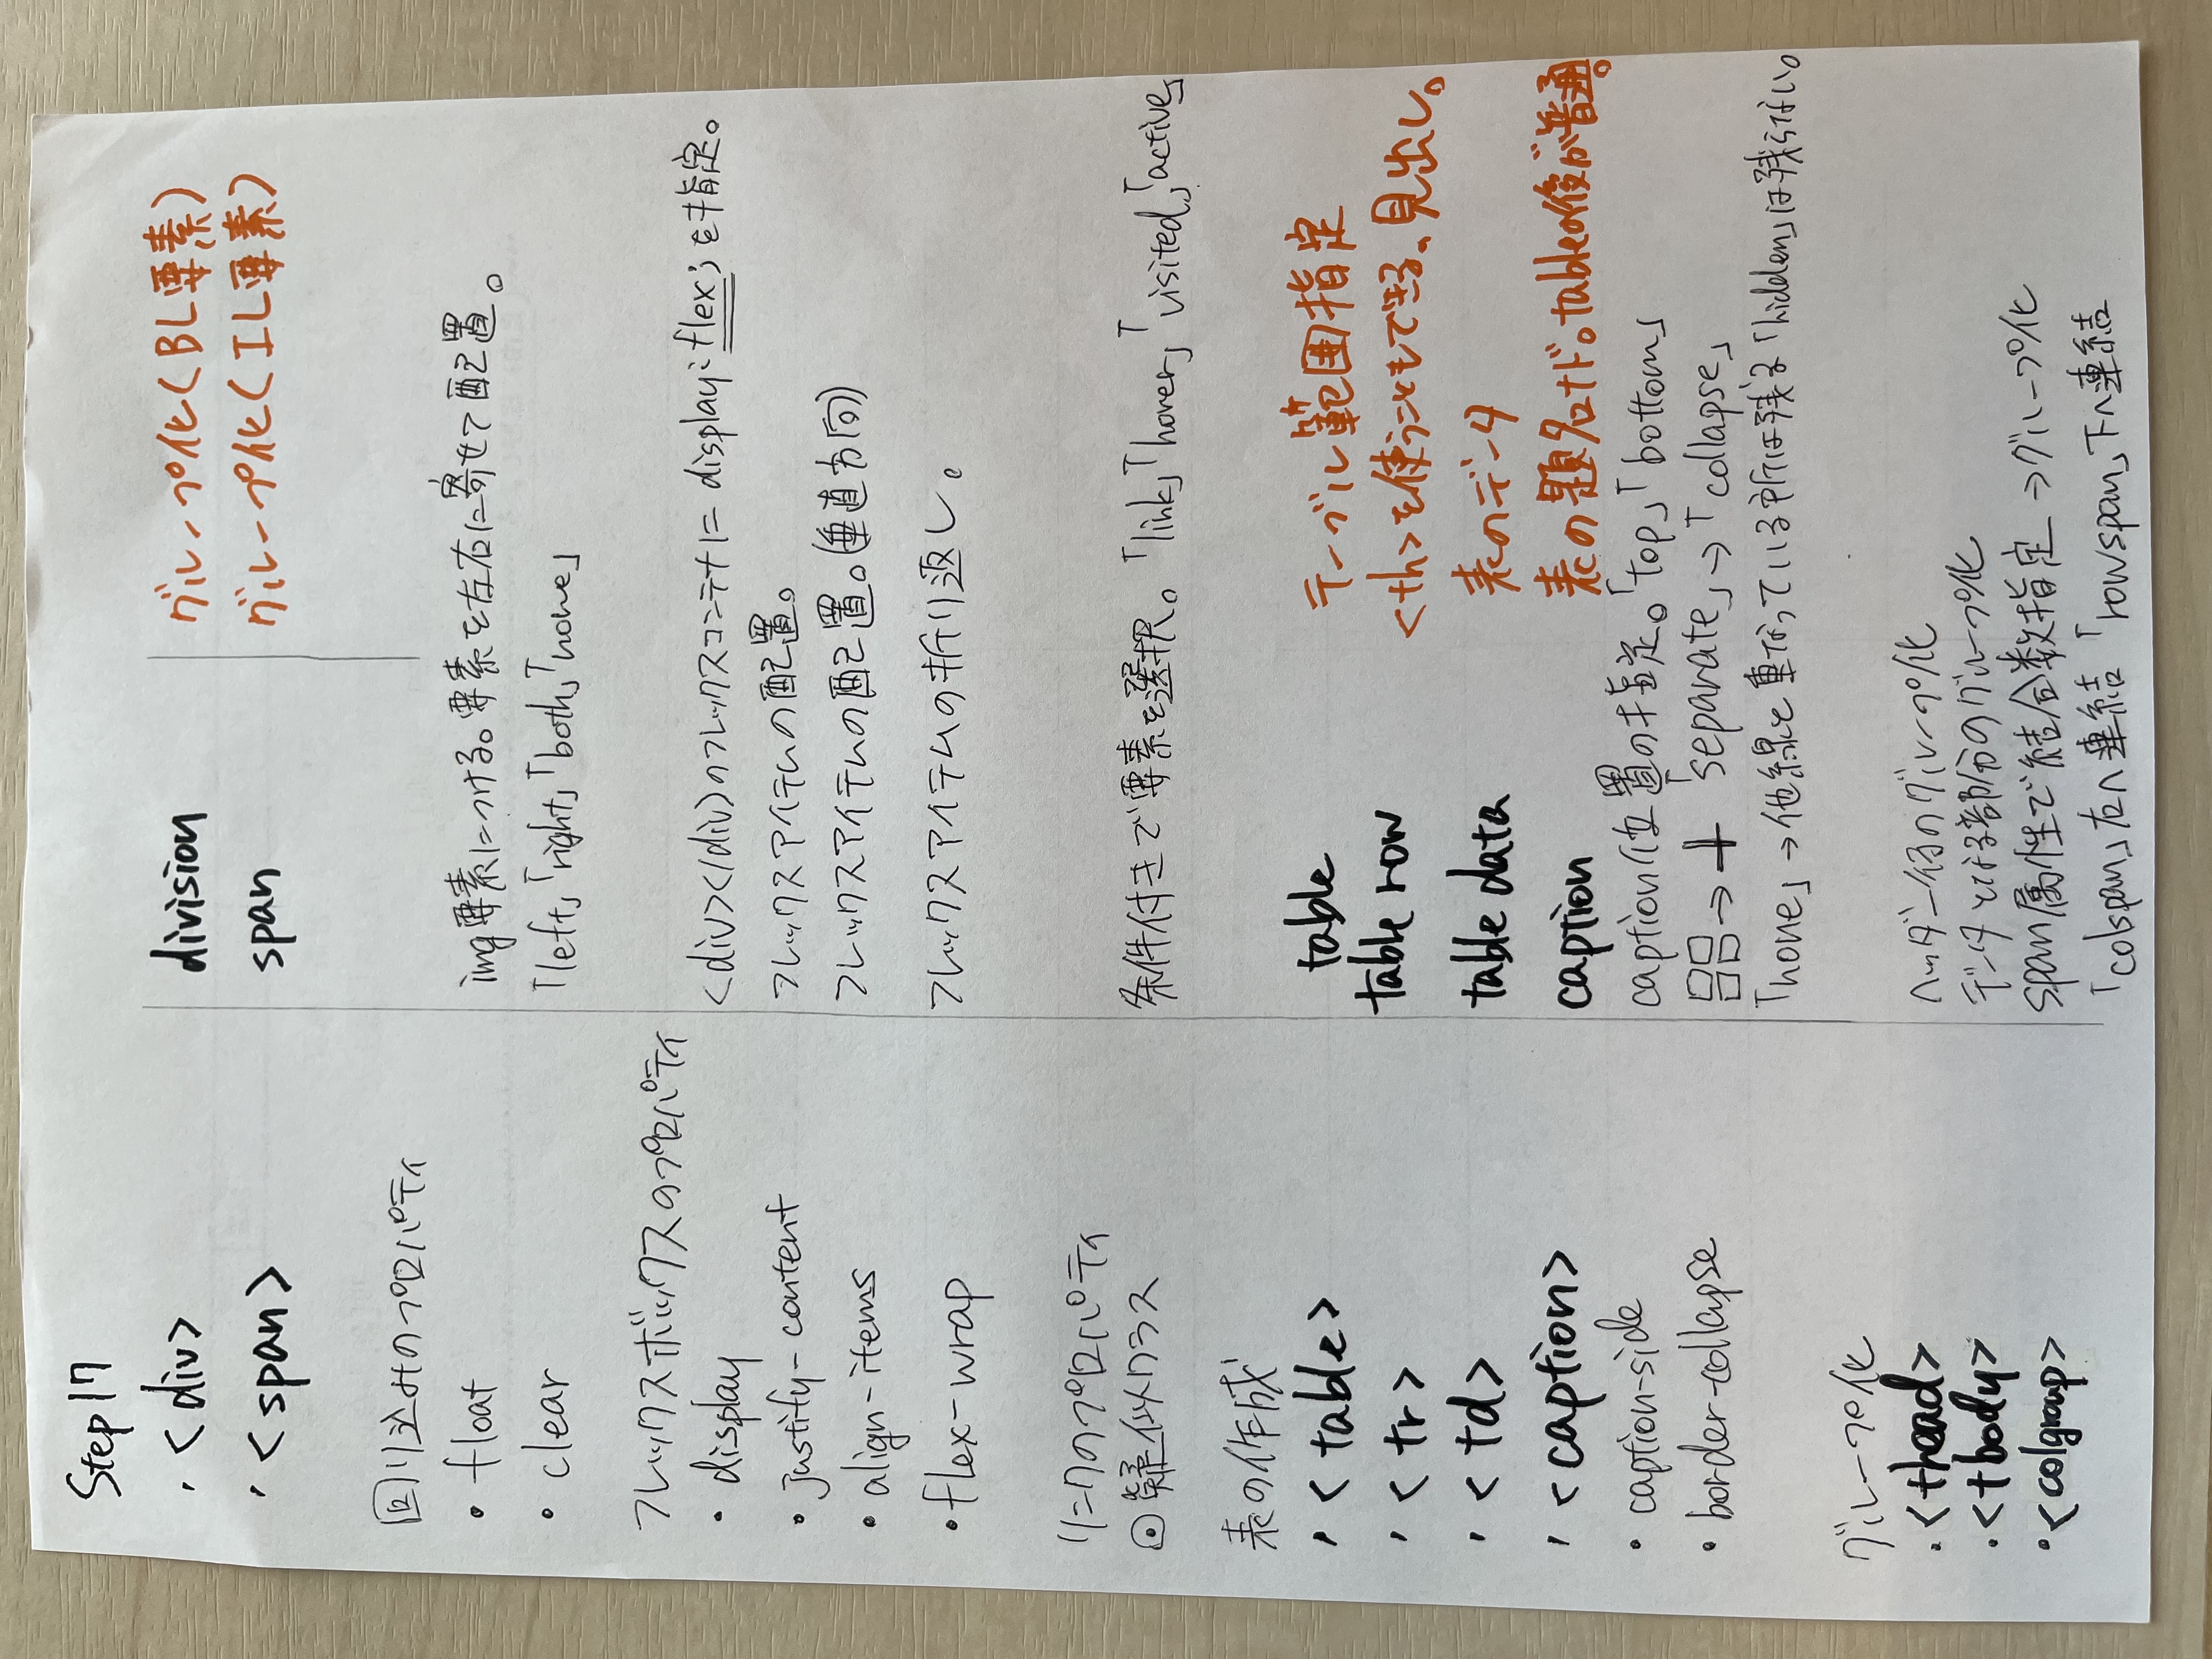 Step 17
・<div> division グループ化(BL要素)
・<span> span グループ化(IL要素)
回り込みのプロパティ
・float img要素につける。要素を左右に寄せて配置。
・clear 「left」「right」「both」「none」
フレックスボックスのプロパティ
・display <div></div>のフレックスコンテナに display:flex;を指定。
・justify-content フレックスアイテムの配置。
・align-items フレックスアイテムの配置。(垂直方向)
・flex-wrap フレックスアイテムの折り返し。
リンクのプロパティ
⊙疑似クラス 条件付きで要素を選択。「link」「hover」「visited」「active」
表の作成
・<table> table テーブル範囲指定
・<tr> table row <th>を使うこともできる、見出し。
・<td> table data 表のデータ
・<caption> caption 表の題名ナド。tableの後が普通。
・caption-side caption位置の指定。「top」「bottom」
・border-collapse →「separate」→「collapse」
「none」→他線と重なっている所は残る「hidden」は残らない。
グループ化
・<thead> ヘッダー行のグループ化
・<tbody> データとなる部分のグループ化
・<colgroup> span属性で結合数指定→グループ化
「colspan」右へ連結「rowspan」下へ連結